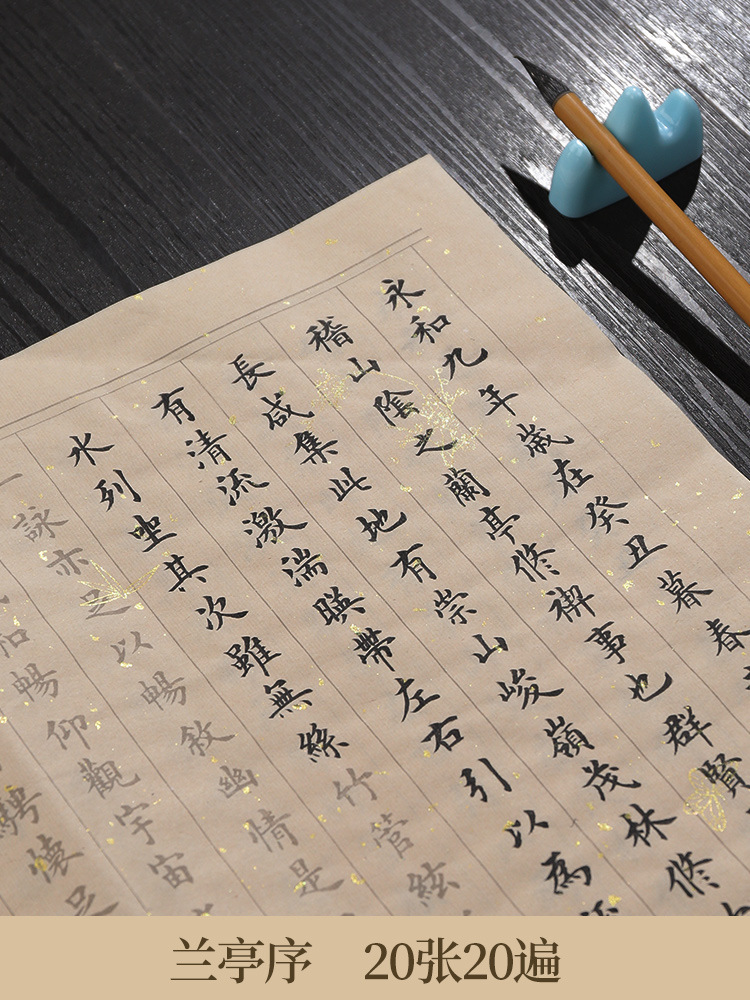 永和九年歲在癸丑暮春
稽山陰之蘭亭修禊事也群賢
長咸集此地有崇山峻嶺茂林修
有清流激湍暎帶左右引以為
水列坐其次雖無絲竹管絃
一詠亦足以暢敘幽情是
和暢仰觀宇宙
騁懷足
兰亭序 20张20遍